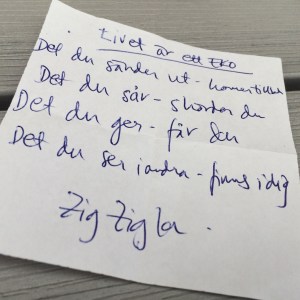 Livet är ett EKO
Det du sänder ut - kommer tillbaka
Det du sår - skördar du
Det du ger - får du
Det du ser i andra - finns i dig
Zig Ziglar.